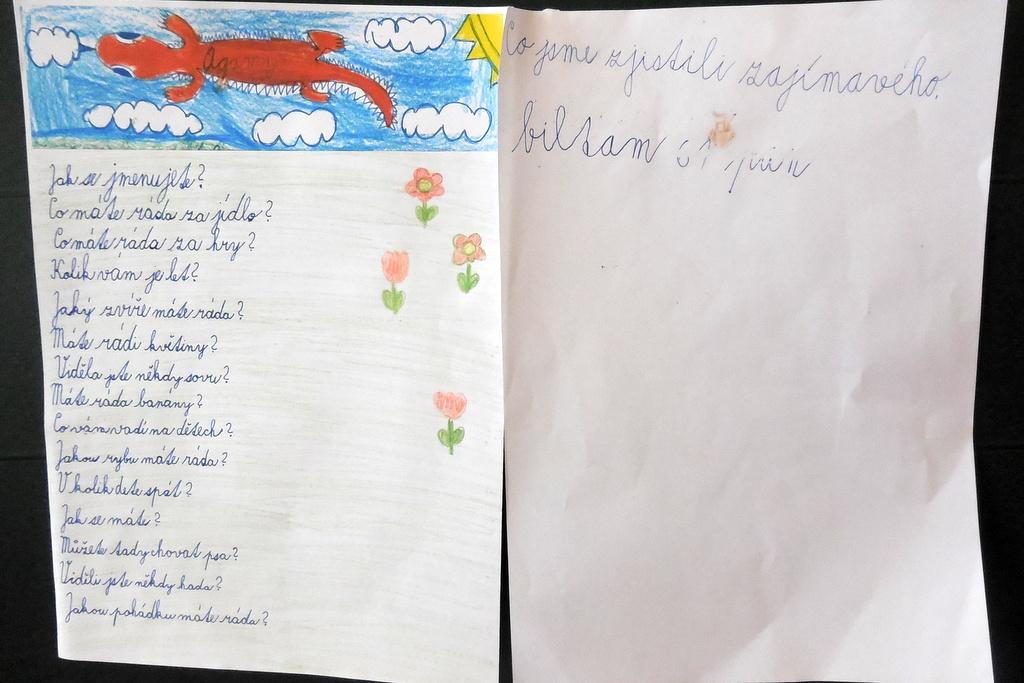 Agamy
Jak se jmenujete?
Co máte ráda za jídlo?
Co máte ráda za hry?
Kolik vám je let?
Jaký zvíře máte ráda?
Máte rádi květiny?
Viděla jste někdy sovu?
Máte ráda banány?
Co vám vadí na dětech?
Jakou rybu máte ráda?
V kolik dete spát?
Jak se máte?
Můžete tady chovat psa?
Viděli jste někdy hada?
Jakou pohádku máte ráda?
Co jsme zjistili zajímavého.
bil tam